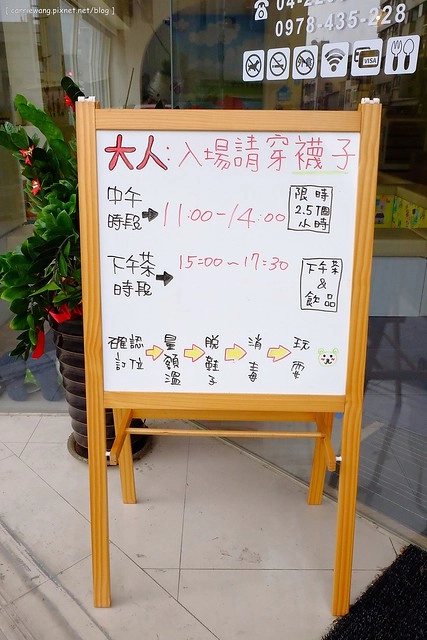 [ corriewang.pixnet.net/blog ]
0978-435-228
VISA
大人:入場請穿襪子
中午時段➡11:00-14:00
限時2.5個小時
下午茶時段➡15:00~17:30
下午茶&飲品
確認訂位➡量額溫➡脫鞋子➡消毒➡玩耍